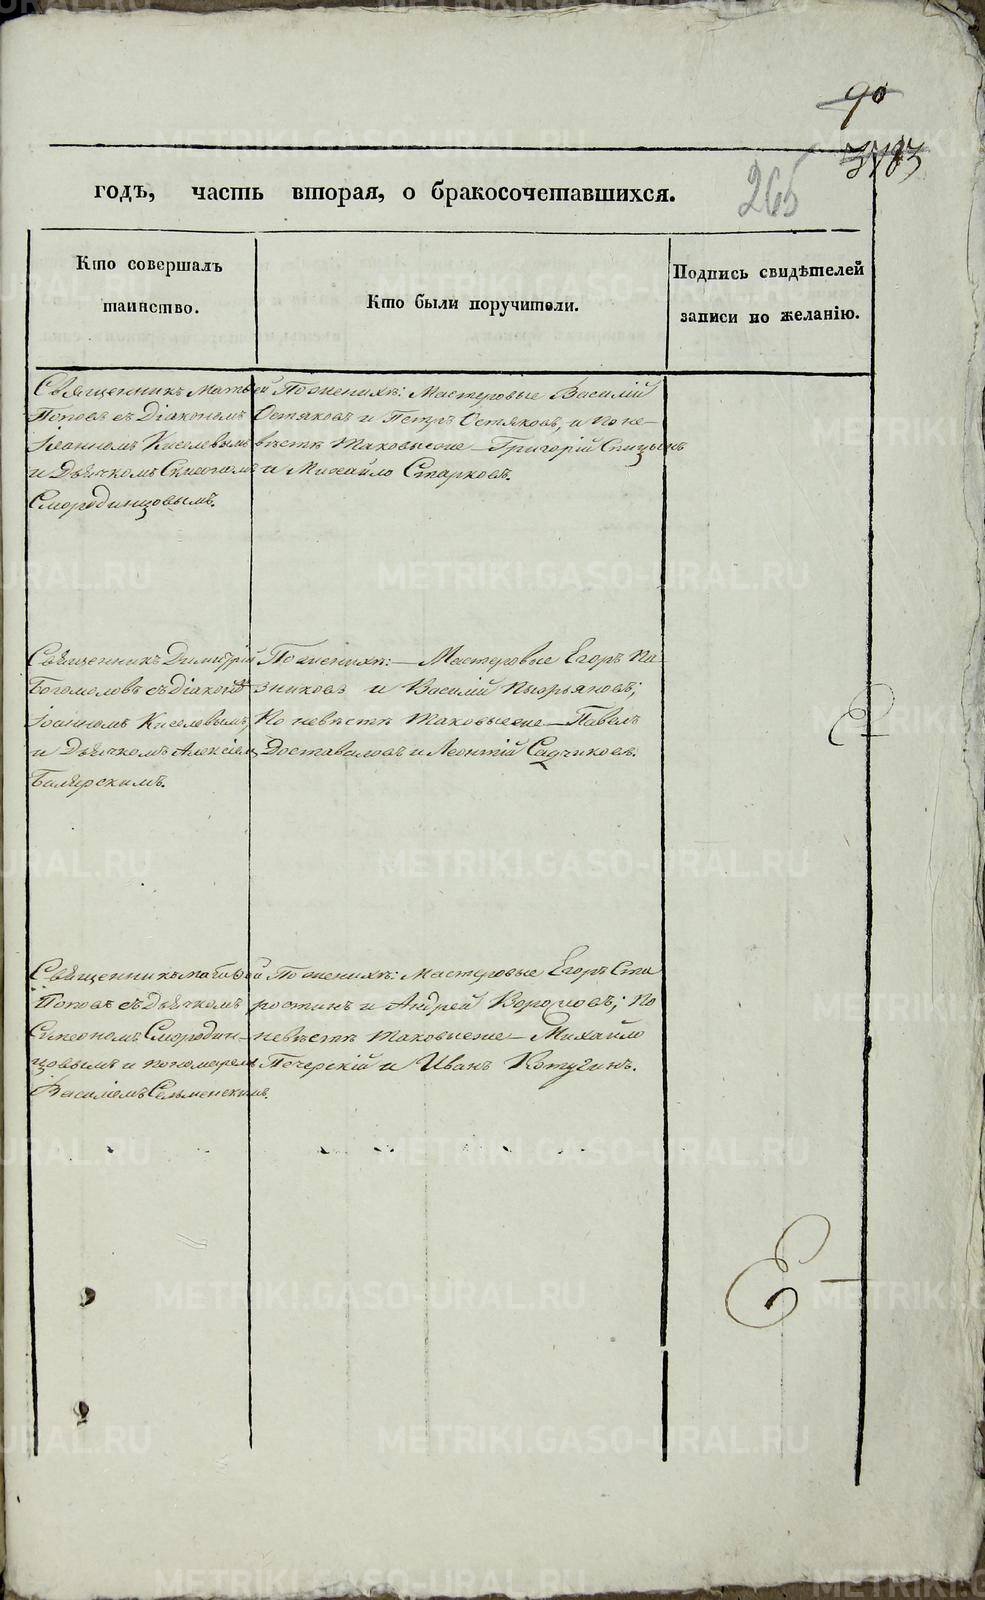 90
3783
265
годъ, часть вторая, о бракосочетавшихся.
Кто совершалъ
таинство.
Кто были поручители.
Подпись свидѣтелей
записи по желанію.
Священникъ Матѳей
Поповъ съ Діакономъ
Іоанномъ Киселевымъ
и Дьячкомъ Симеономъ
Смородинцовымъ.
По женихѣ: Мастеровые Василій
Остяковъ и Петръ Остяковъ, и по не-
вѣстѣ таковые же – Григорій Спицынъ
и Михайло Старковъ.
Священникъ Димитрій
Богомоловъ съ Діакономъ
Іоанномъ Киселевымъ,
и Дьячкомъ Алексіемъ
По женихѣ: – Мастеровые Егоръ
и Василій
По невѣстѣ таковые же – Павелъ
Доставаловъ и Леонтій Садчиковъ.
Священникъ Матѳей
Поповъ съ Дьячкомъ
Симеономъ Смородин-
цовымъ и пономаремъ
Василіемъ Сельменскимъ.
По женихѣ: Мастеровые Егоръ Ста
ростинъ и Андрей По
невѣстѣ таковые же – Михайло
Печерскій и Иванъ Котугинъ.
METRIKI.GASO-URAL.RU